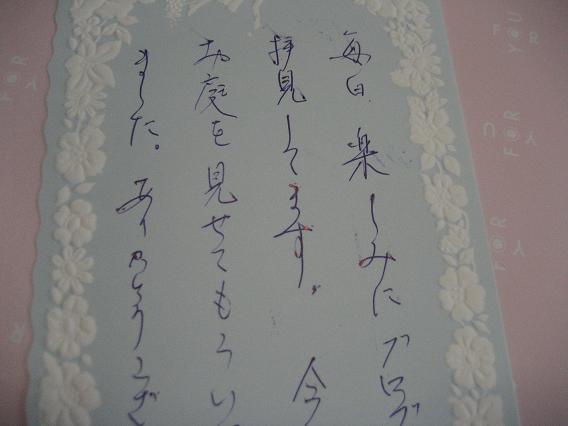 毎日、楽しみにブログ
拝見してます。今
お庭を見せてもらい
ました。ありがとうござ
FOR YOU
FOR YOU
FOR YOU